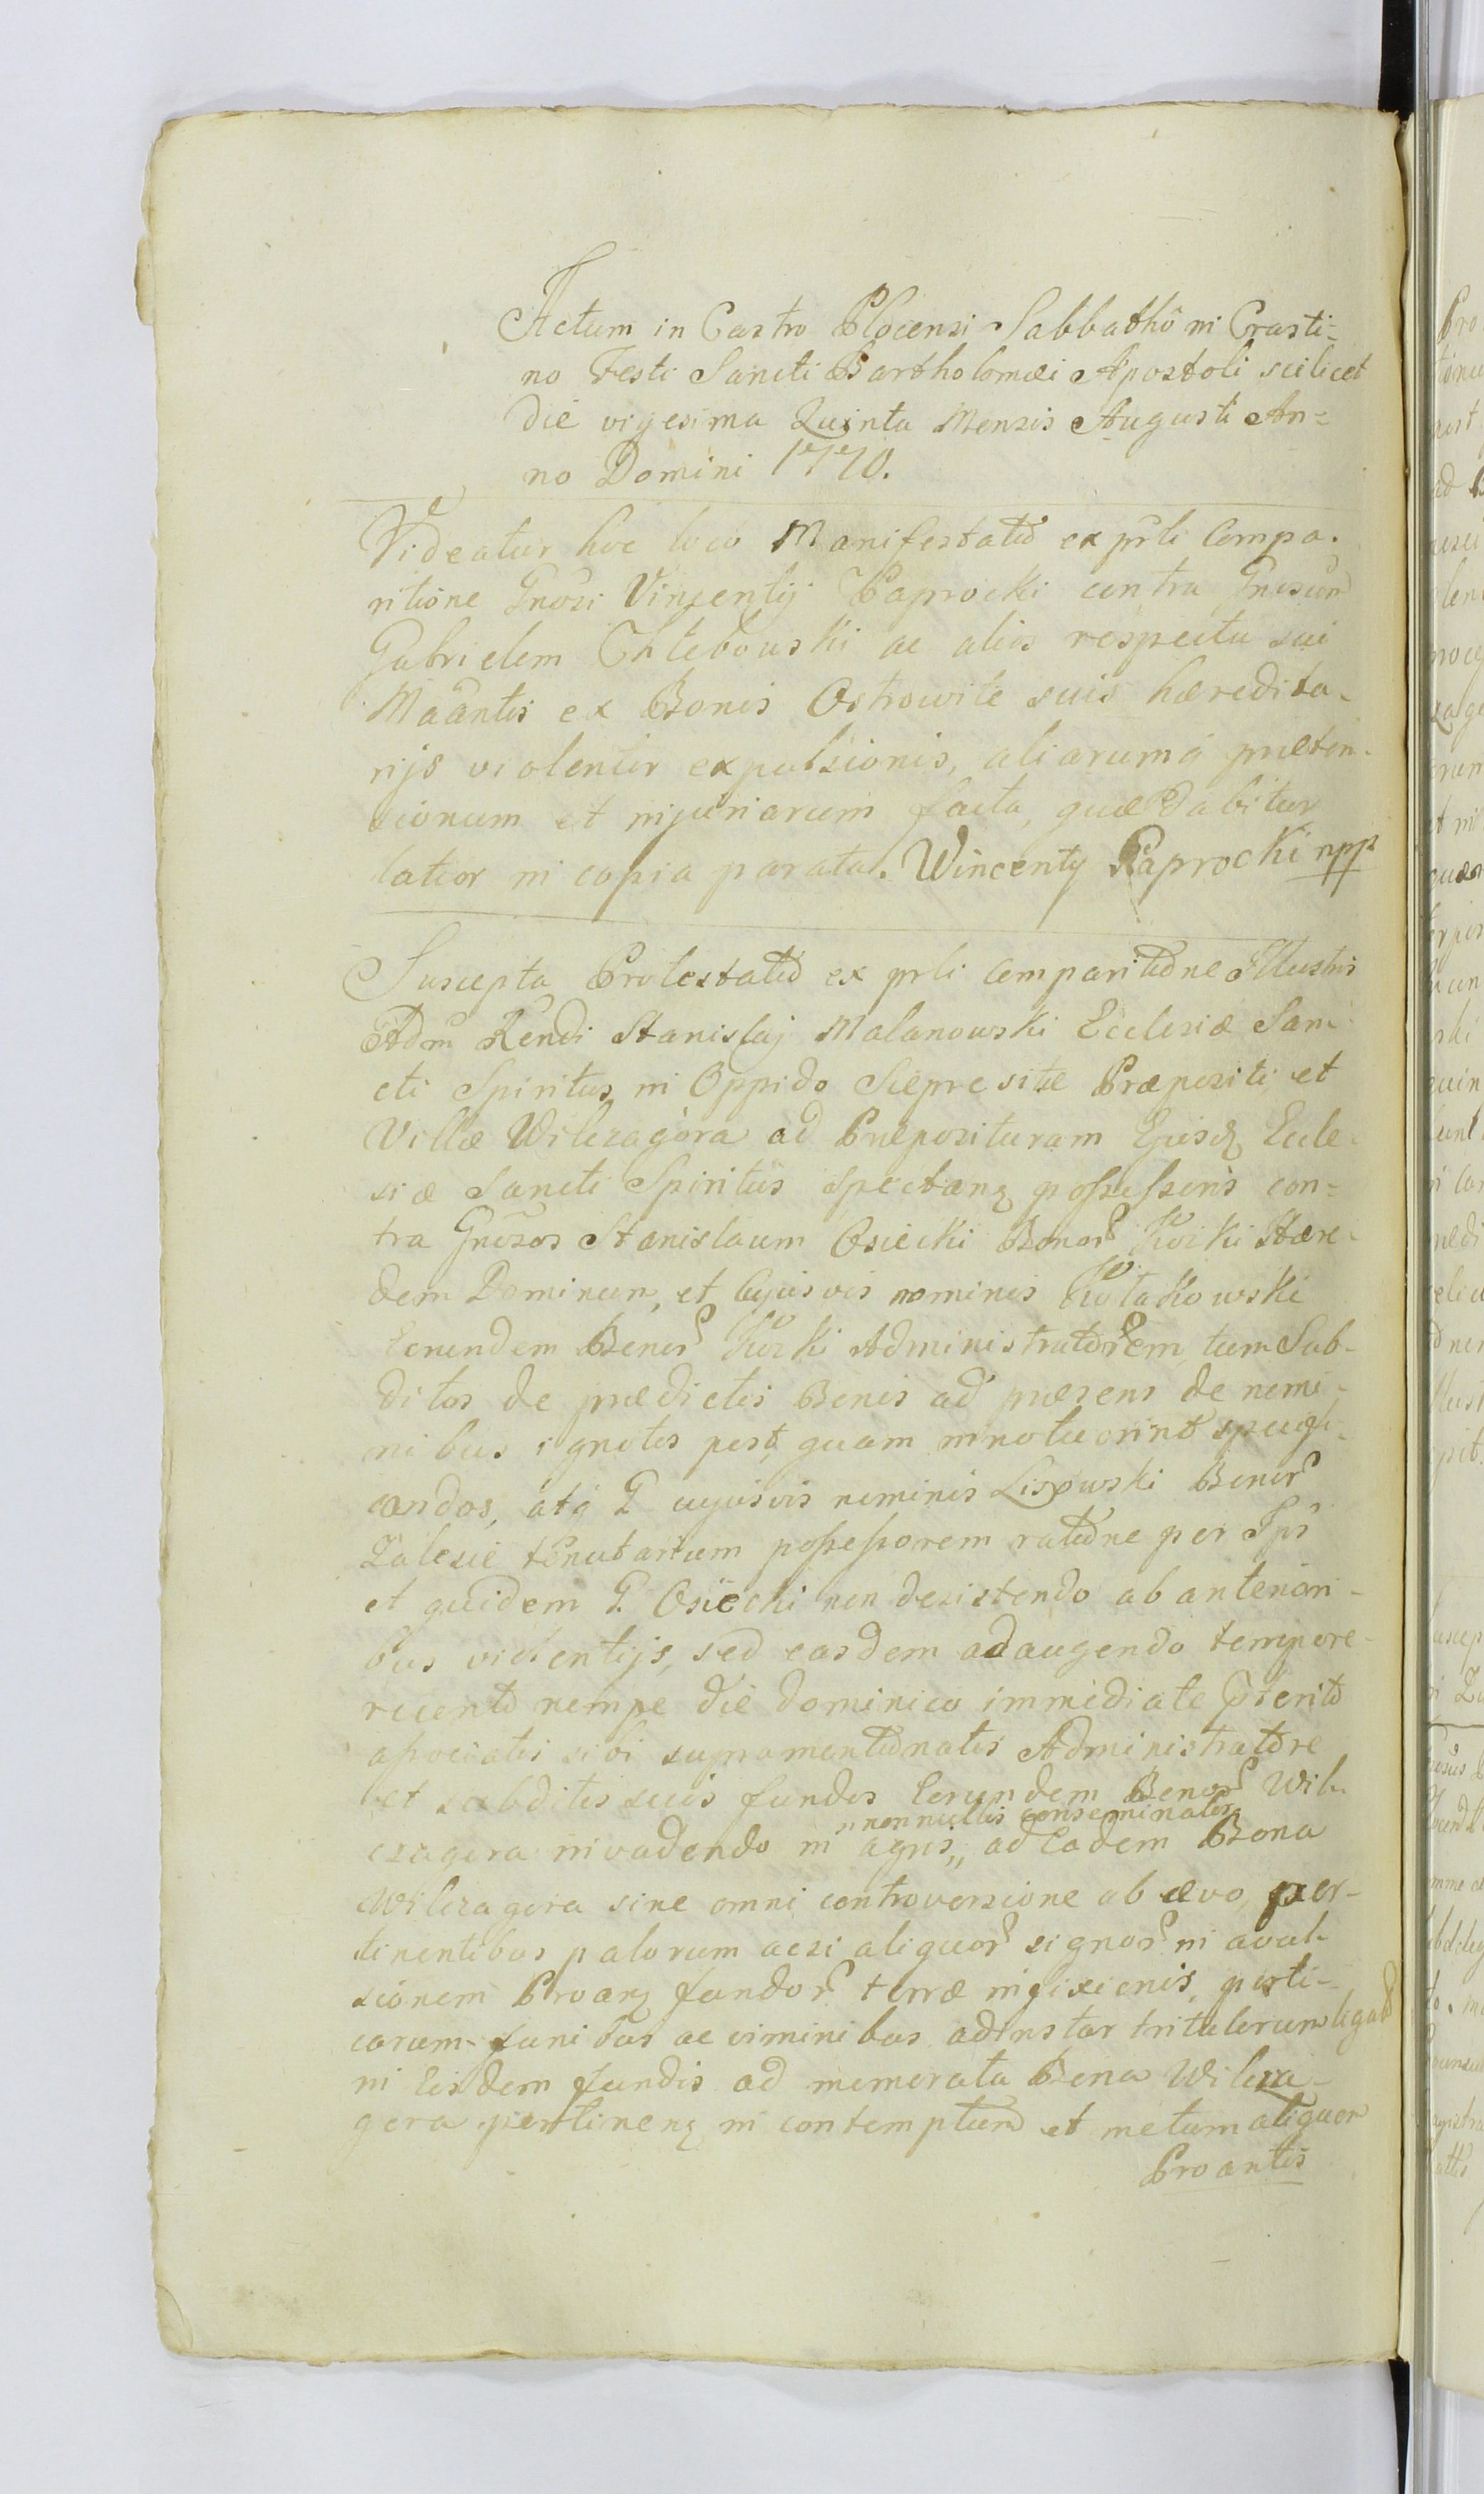 Actum in Castro Plocensi Sabbathô in Crasti=
no Festi Sancti Bartholomæi Apostoli scilicet
die vigesima Quinta Mensis Augusti An=
no Domini 1770.
Videatur hoc loco Manifestatio ex prli Compa-
ritione Gnosi Vincentij Paprocki contra Gnosum
Gabrielem Chlebowski ac alios respectu sui
Maantis ex Bonis Ostrowite suis hæredita-
rijs violentir expulsionis, aliarumq prætên-
sionum et injuriarum facta, quæ dabitur
latior in copia parata. Wincenty Paprocki mpp
Suscepta Protestatio ex prli Comparitione Illustris
Adm Rendi Stanislaj Malanowski Ecclesiæ San-
cti Spiritus in Oppido Sieprc sitæ Præpositi, et
Villæ Wilczagora ad Præposituram Ejusd Eccle-
siæ Sancti Spiritûs spectan possessoris con=
tra Gnosos Stanislaum Osiecki Bonor Kozki Hære-
dem Dominum, et Cujusvis nominis Kołakowski
Eorundem Bonor Kozki Administratorem, tum Sub-
ditos de prædictis Bonis ad præsens de nomi-
nibus ignotos post, quam innotuerint specifi-
candos, atq G cujusvis nominis Lisowski Bonor
Zalesie tenutarium possessorem ratione per Ips
et quidem G. Osiecki non desistendo ab anteriori-
bus violentijs, sed easdem adaugendo tempore
recento nempe die dominico immediate præterito
associatis sibi supramentionatis Administratore
et subditis suis fundos Eorundem Bonor Wil-
czagora invadendo in agris,, ad Eadem Bona
,,nonnullis conseminatis
Wilczagora sine omni controversione ab ævo per-
tinentibus palorum acsi aliquor signor in avul-
sionem Proan fundor terræ infixionis, perti-
carum funibus ac viminibus ad instar tritulorum ligat
in Eisdem fundis ad memorata Bona Wilcza-
gora pertinen in contemptum et metum aliquor
Proantis